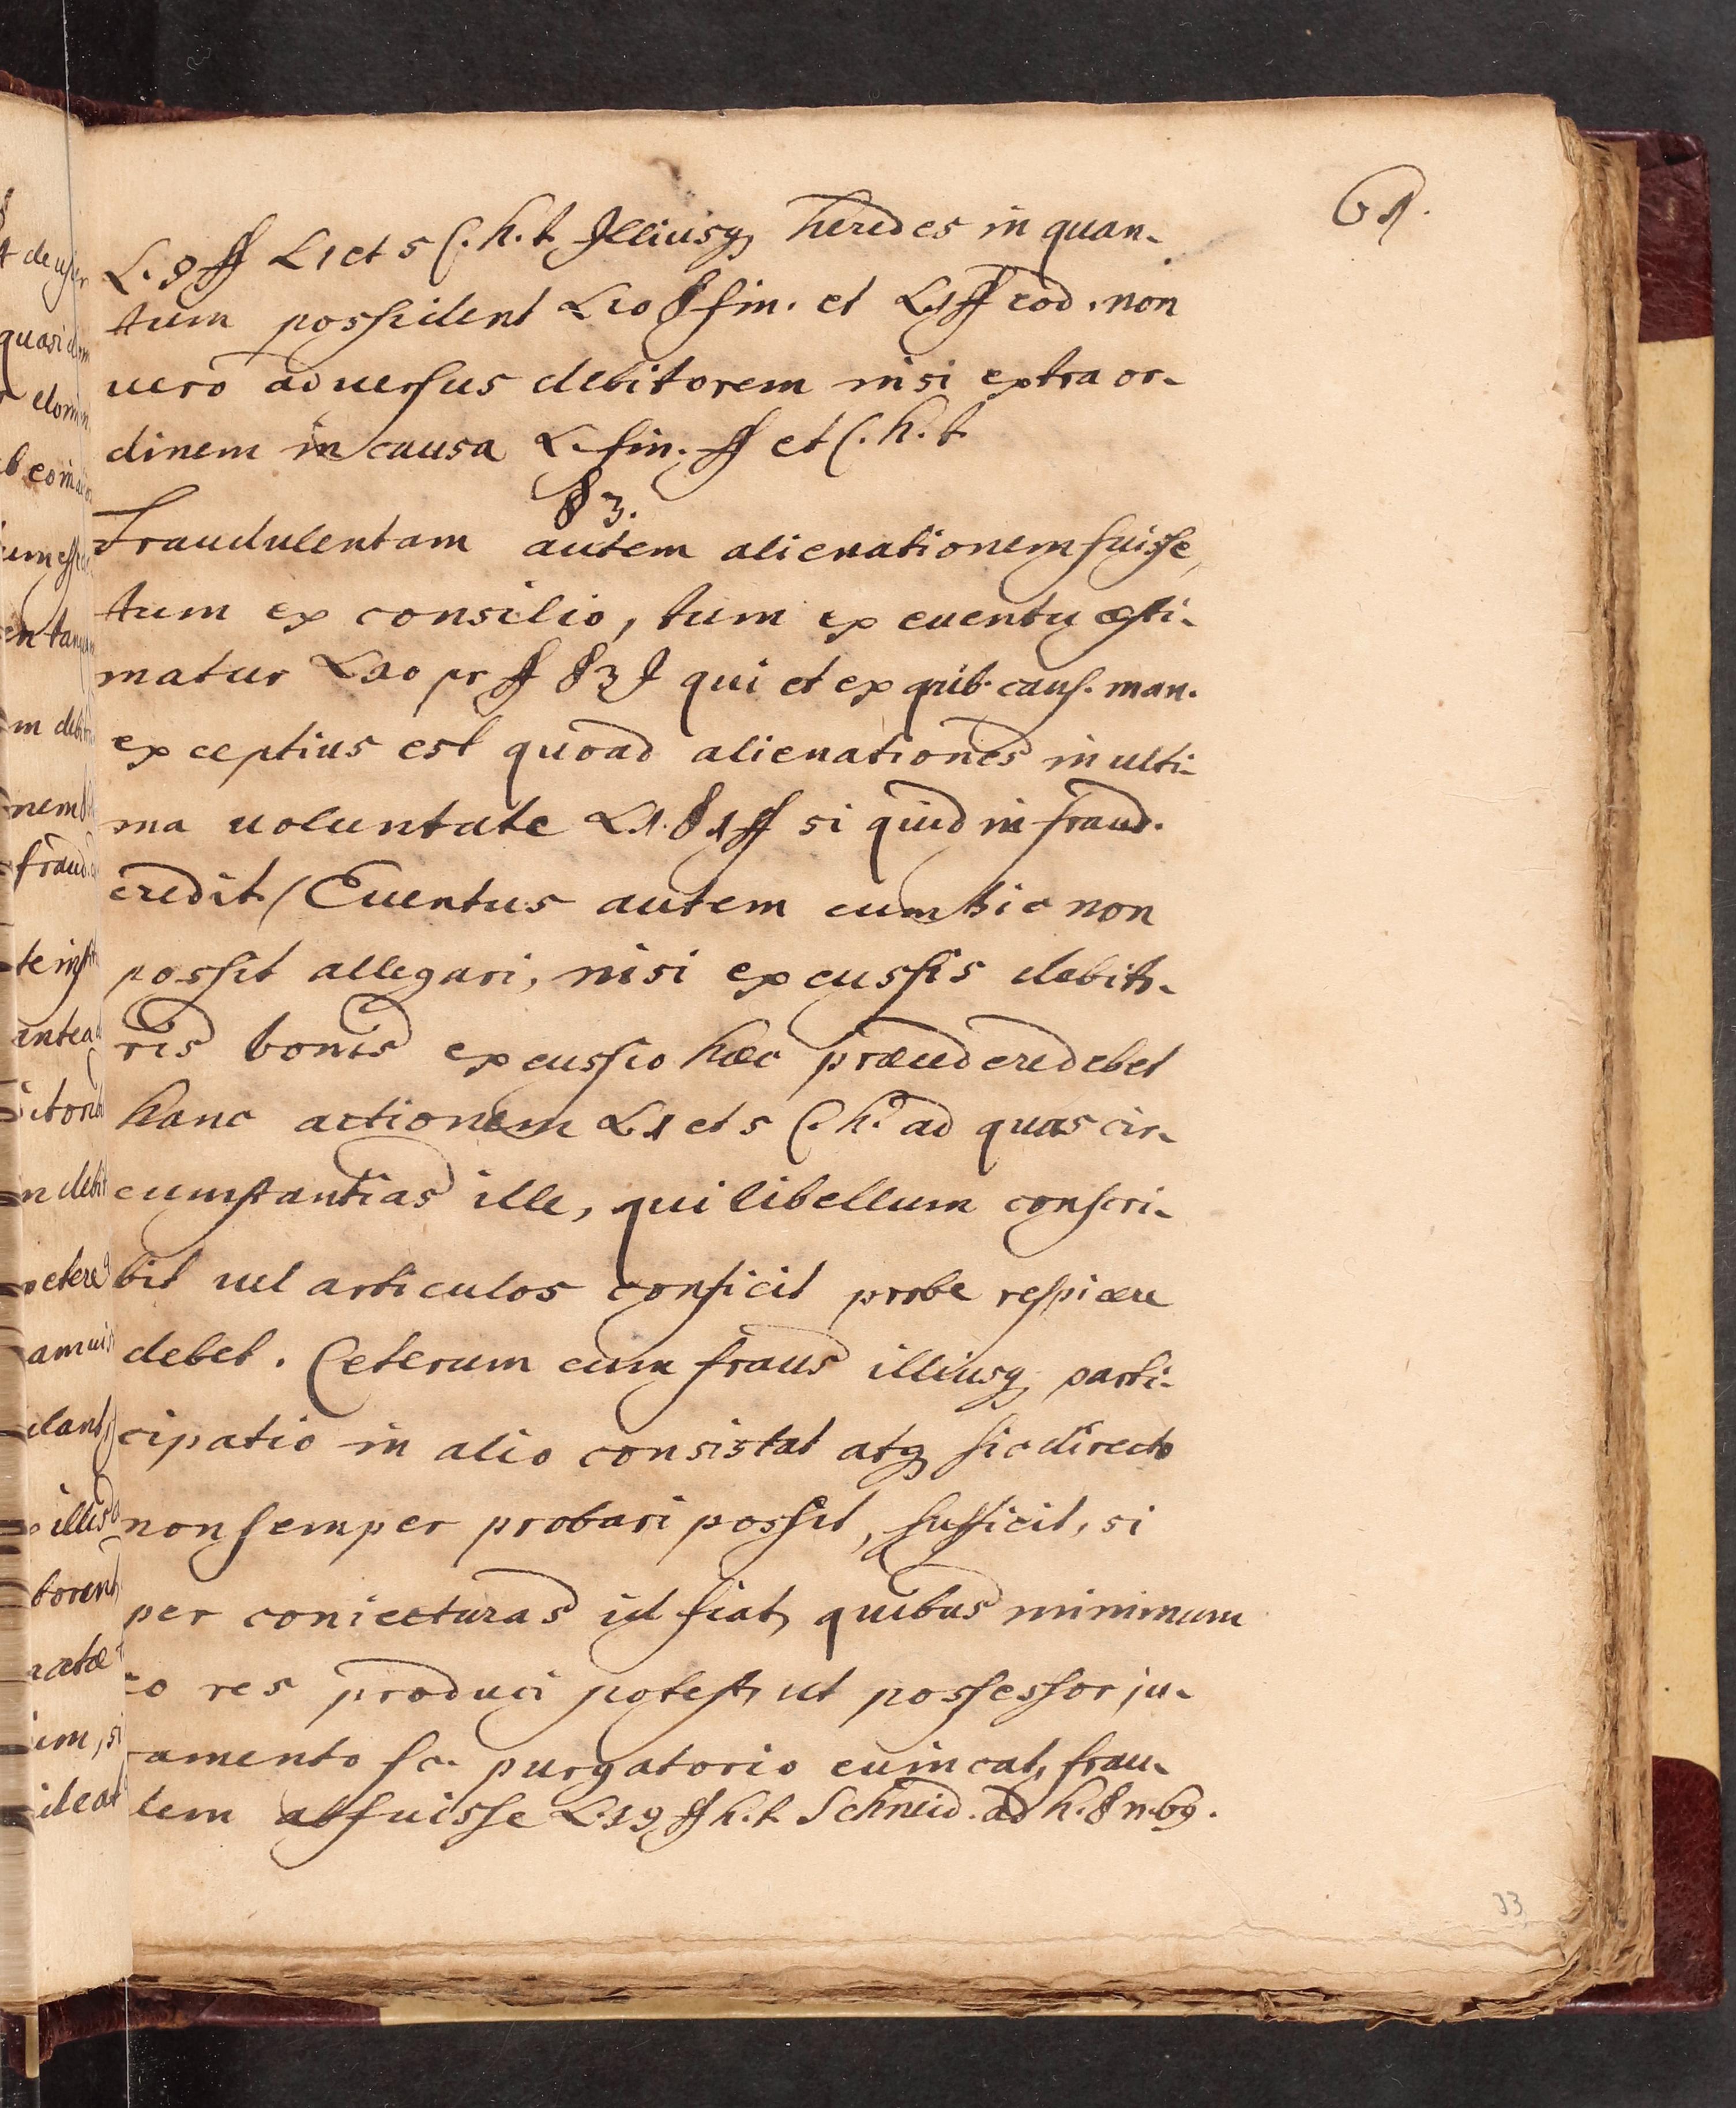 61.
L. 9 ff L 1 et 5 C. h. t. Illiusq heredes in quan-
tum possident L 10 § fin. et L 9 ff eod. non
uero aduersus debitorem nisi extra or-
dinem in causa L. fin. ff et C. h. t.
§ 3.
Fraudulentam autem alienationem fuisse,
tum ex consilio, tum ex euentu æsti-
matur L 10 pr ff § 3 I qui et ex quib. caus. man.
exceptius est quoad alienationes in ulti-
ma uoluntate L 1. § 1 ff si quid in fraud.
credit. Euentus autem cum hic non
possit allegari, nisi excussis debito-
ris bonis excussio hæc præcedere debet
hanc actionem L 1 et 5 C. h. ad quas cir-
cumstantias ille, qui libellum conscri-
bit uel articulos conficit probe respicere
debet. Ceterum cum fraus illiusq parti-
cipatio in alio consistat atq sic directo
non semper probari possit, sufficit, si
per coniecturas id fiat, quibus minimum
eo res produci potest, ut possessor ju-
ramento sc. purgatorio euincat, frau-
dem abfuisse L. 19 ff h. t. Schneid. ad h. § n. 69.
33